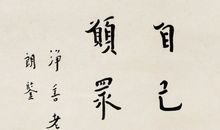 自己
願眾
淨善老
朗鑒